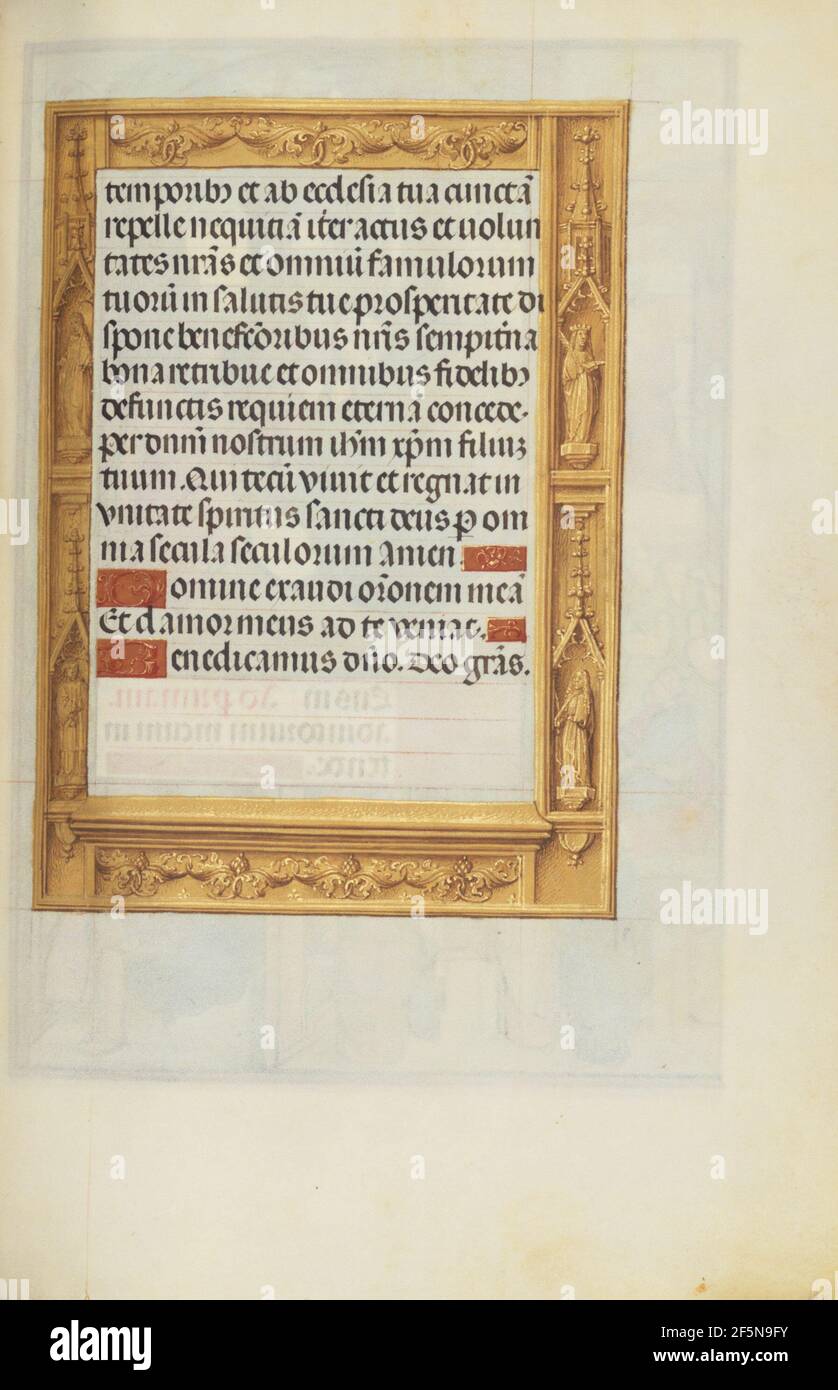 temporibꝫ et ab ecclesia tua cunctā
repelle nequitiā iter actus et volun
tates nrās et omniū famulorum
tuorū in salutis tue prosperitate di
spone benefcōribus nrīs sempitn̄a
bona retribue et omnibus fidelibꝫ
defunctis requiem eternā concede·
per dnm̄ nostrum ihm̄ xp̄m filiuꝫ
tuum. Qui tecū vivit et regnat in
vnitate spiritus sancti deus ꝑ om
nia secula seculorum Amen.
Domine exaudi orōnem meā
Et clamor meus ad te veniat.
Benedicamus dn̄o. Deo grās.
alamy
Image ID: 2F5N9FY
www.alamy.com